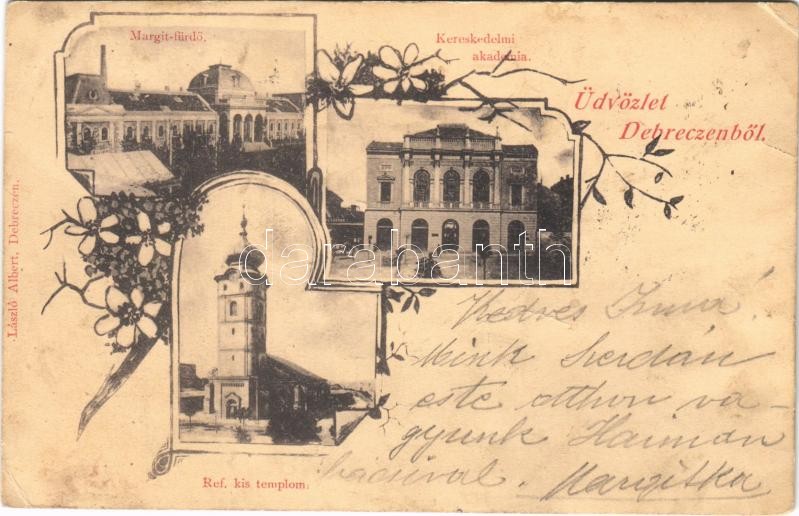 Margit-fürdő.
Kereskedelmi
akademia.
Üdvözlet
Debreczenből.
László Albert, Debreczen.
darabanth
Kedves Irma!
Mink szerdán
este otthon va-
gyunk
bácsival. Margitka
Ref. kis templom.